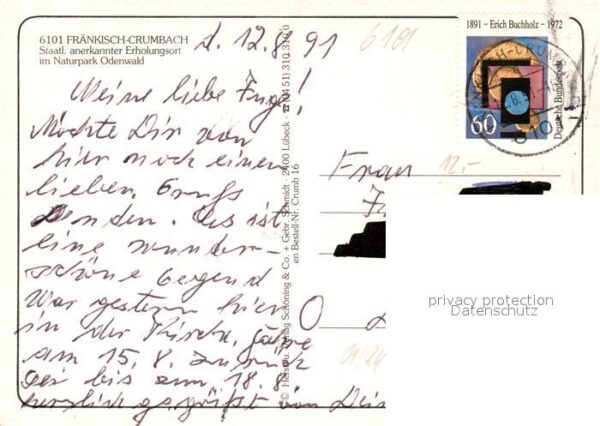 6101 FRÄNKISCH-CRUMBACH
Staatl. anerkannter Erholungsort
im Naturpark Odenwald
d. 12.8.91
6101
Meine liebe Inge!
Möchte Dir von
hier noch einen
lieben Gruß
senden. Es ist
eine wunder-
schöne Gegend
War gestern hier
in der Kirche,
am 15.8. zurück
bis zum 18.8.
herzlich gegrüßt von Dei
© Verlag Schöning & Co. + Gebr. Schmidt · 2400 Lübeck · ☎ (0451) 310 31 0
Bestell-Nr. Crumb 16
1891 – Erich Buchholz – 1972
60
Deutsche Bundespost
Frau
12,-
privacy protection
Datenschutz